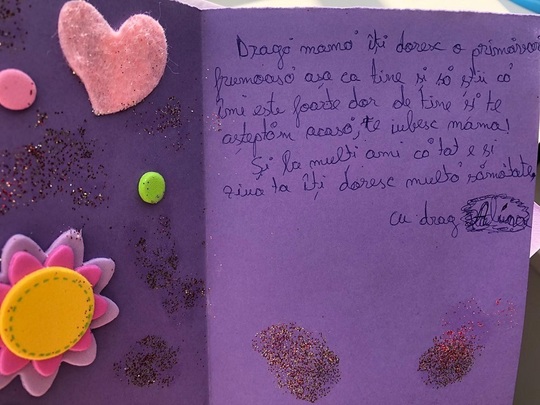 Dragă mamă îți doresc o primăvară
frumoasă așa ca tine și să știi că
îmi este foarte dor de tine și te
așteptăm acasă, te iubesc mama!
Și la mulți ami că tat e și
ziua ta îți doresc multă sămătate,
cu drag